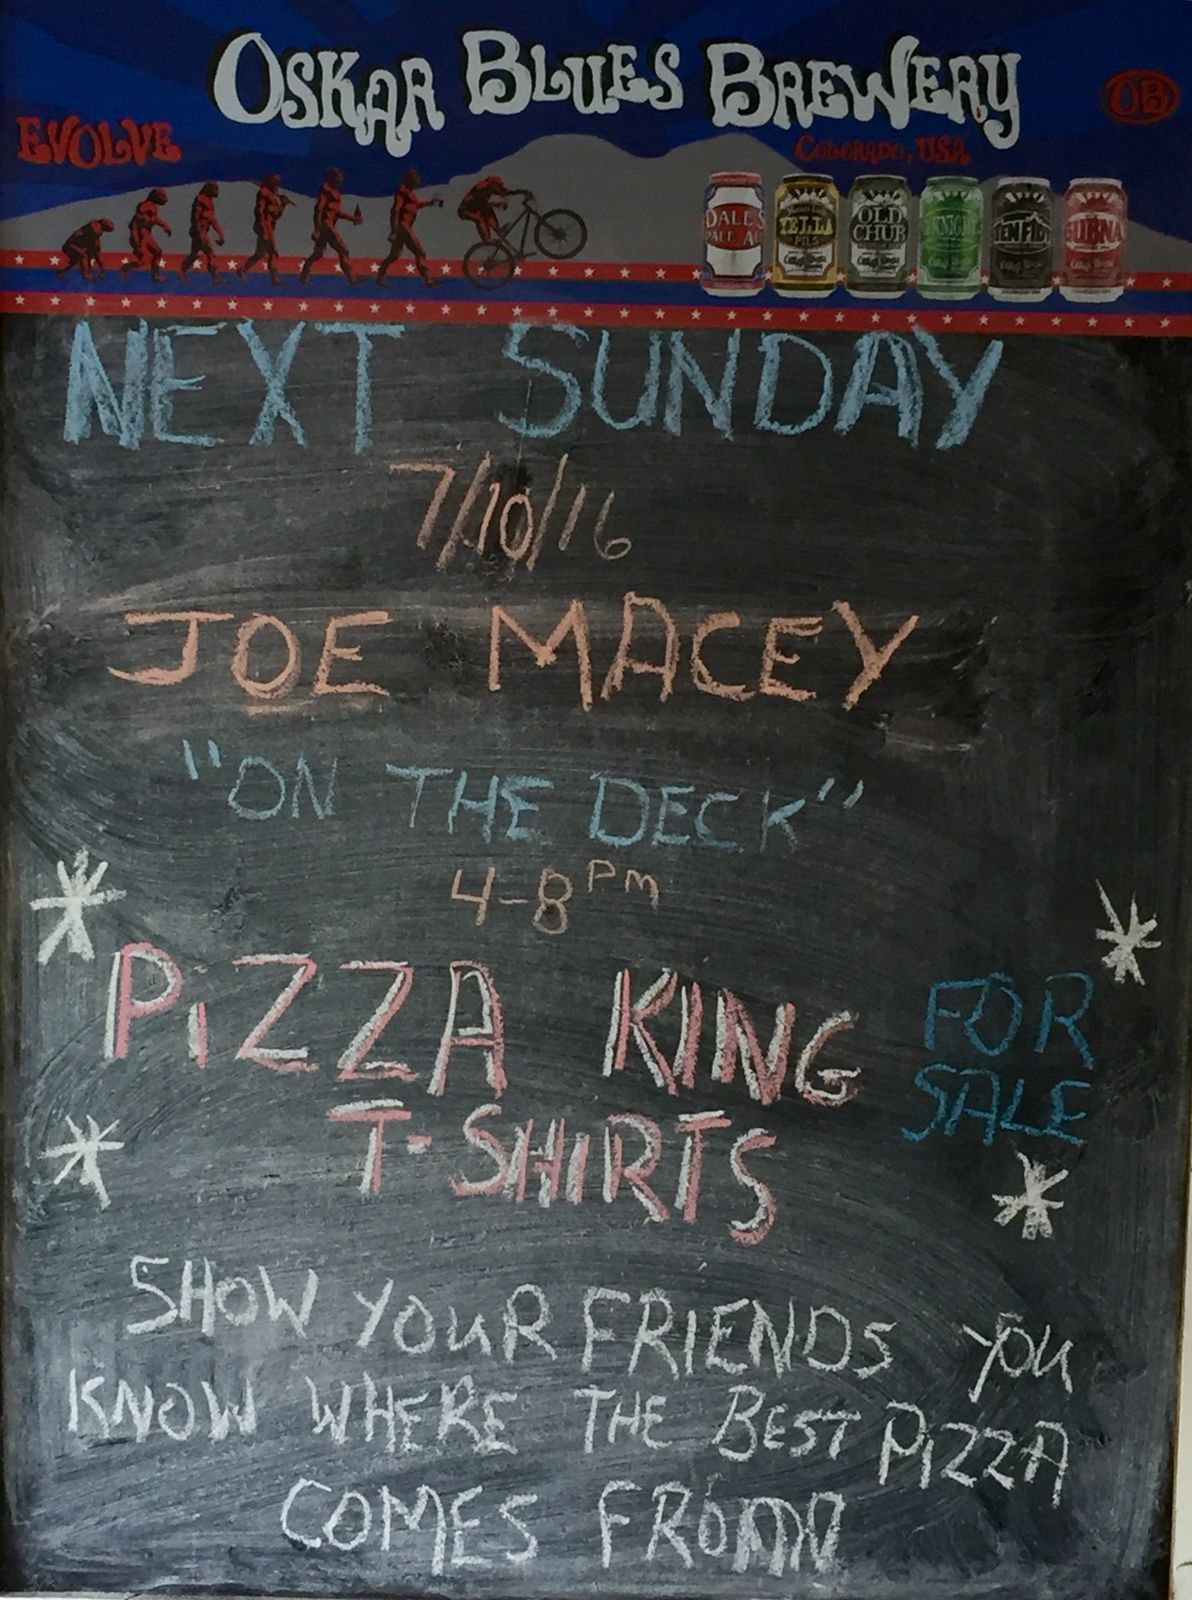 OSKAR BLUES BREWERY
OB
EVOLVE
COLORADO, USA
DALE'S PALE ALE
YELLA PILS
OLD CHUB
G'KNIGHT
TENFIDY
GUBNA
NEXT SUNDAY
7/10/16
JOE MACEY
"ON THE DECK"
4-8 PM
PiZZA KING FOR
T-SHIRTS SALE
SHOW YOUR FRIENDS YOU
KNOW WHERE THE BEST PiZZA
COMES FROM